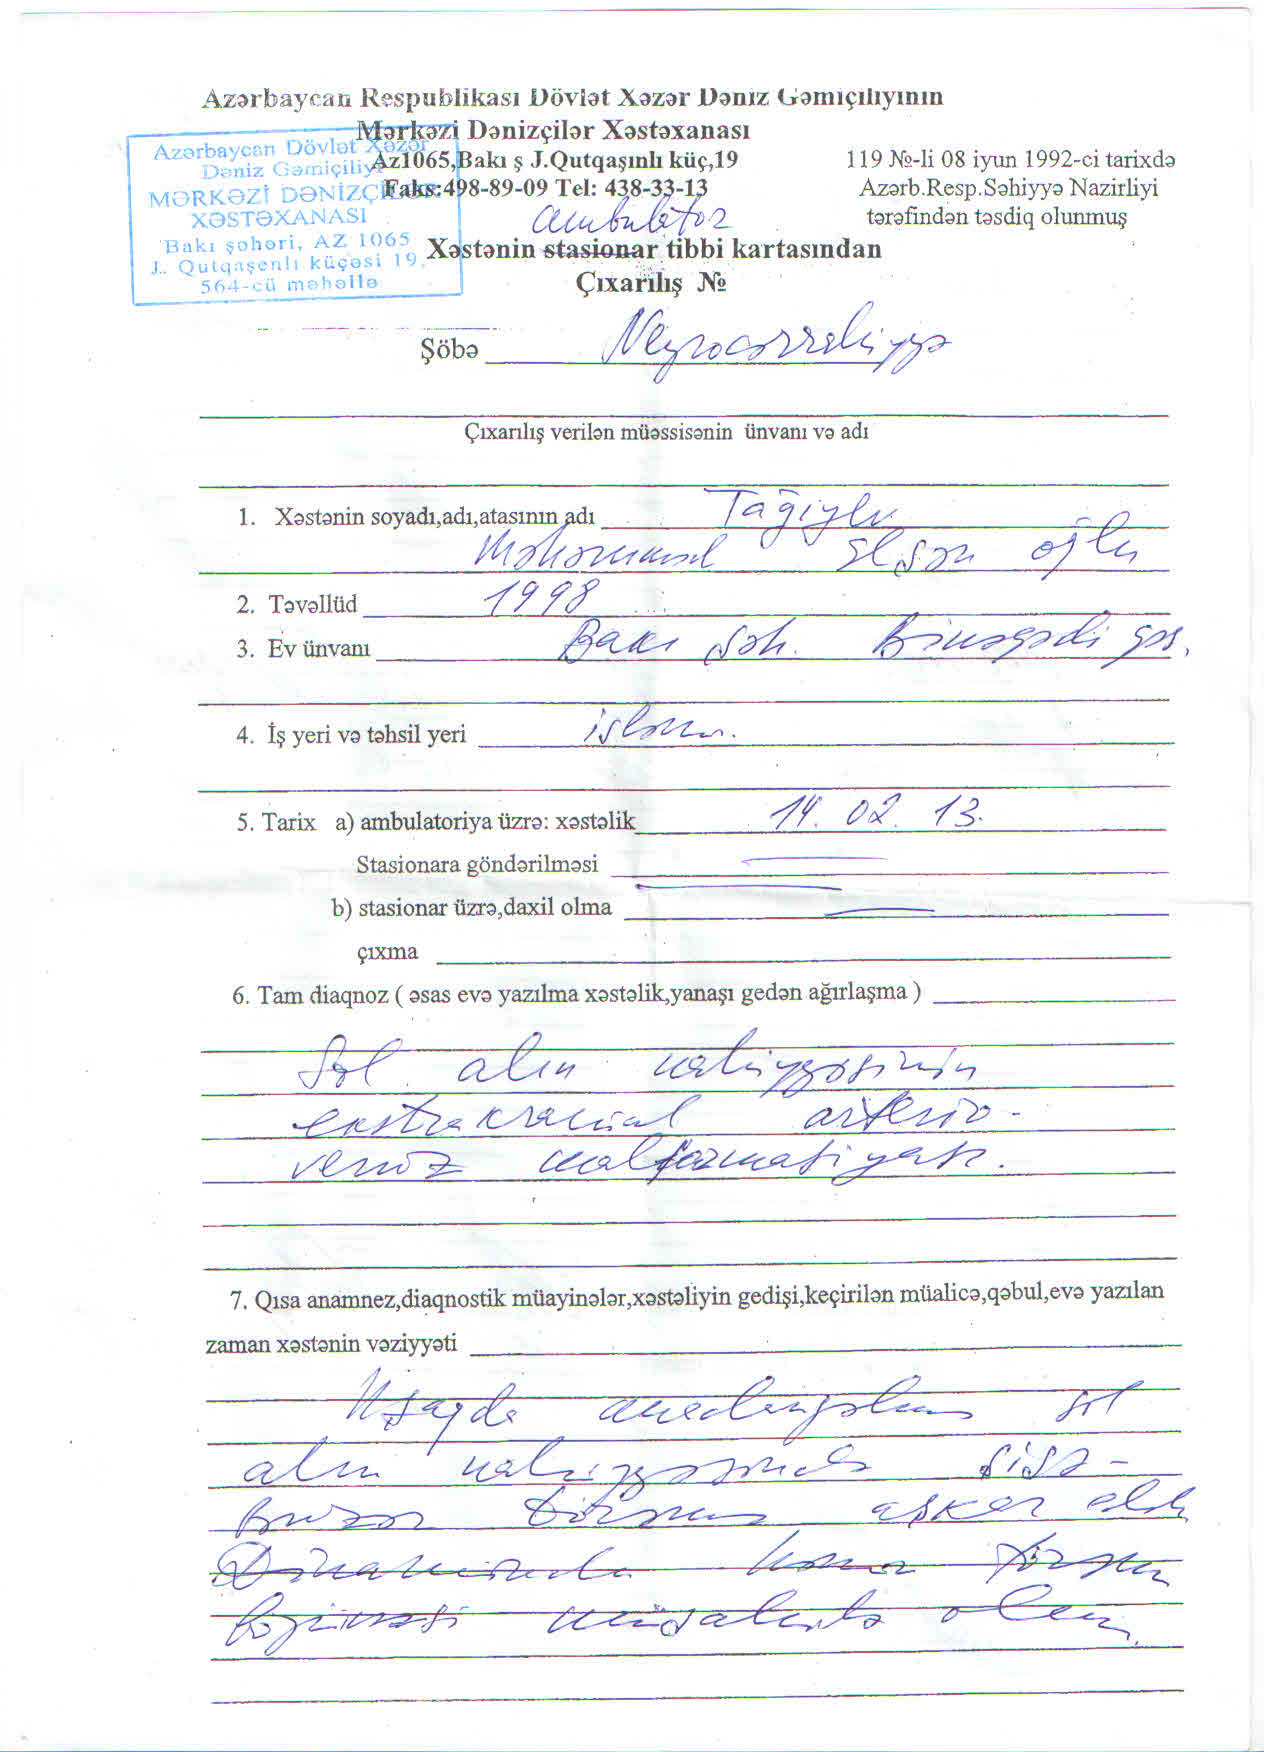 Azərbaycan Respublikası Dövlət Xəzər Dəniz Gəmiçiliyinin
Mərkəzi Dənizçilər Xəstəxanası
Az1065,Bakı ş J.Qutqaşınlı küç,19
Faks:498-89-09 Tel: 438-33-13
119 №-li 08 iyun 1992-ci tarixdə
Azərb.Resp.Səhiyyə Nazirliyi
tərəfindən təsdiq olunmuş
Azərbaycan Dövlət Xəzər
Dəniz Gəmiçiliyi
MƏRKƏZİ DƏNİZÇİLƏR
XƏSTƏXANASI
Bakı şəhəri, AZ 1065
J. Qutqaşenlı küçəsi 19,
564-cü məhəllə
ambulator
Xəstənin stasionar tibbi kartasından
Çıxarılış №
Şöbə Neyrocərrahiyyə
Çıxarılış verilən müəssisənin ünvanı və adı
1. Xəstənin soyadı,adı,atasının adı Tağıyev
Məhəmməd Elşən oğlu
2. Təvəllüd 1998
3. Ev ünvanı Bakı şəh. Binəqədi qəs.
4. İş yeri və təhsil yeri işləmir.
5. Tarix a) ambulatoriya üzrə: xəstəlik 14. 02. 13.
Stasionara göndərilməsi
b) stasionar üzrə,daxil olma
çıxma
6. Tam diaqnoz ( əsas evə yazılma xəstəlik,yanaşı gedən ağırlaşma )
Sol alın nahiyyəsinin
ekstrakranial arterio-
venoz malformasiyası.
7. Qısa anamnez,diaqnostik müayinələr,xəstəliyin gedişi,keçirilən müalicə,qəbul,evə yazılan
zaman xəstənin vəziyyəti
Uşaqda anadangəlmə sol
alın nahiyyəsində şişə-
bənzər törəmə aşkar olub
Dinamikada həmin törəmənin
böyüməsi müşahidə olunur.